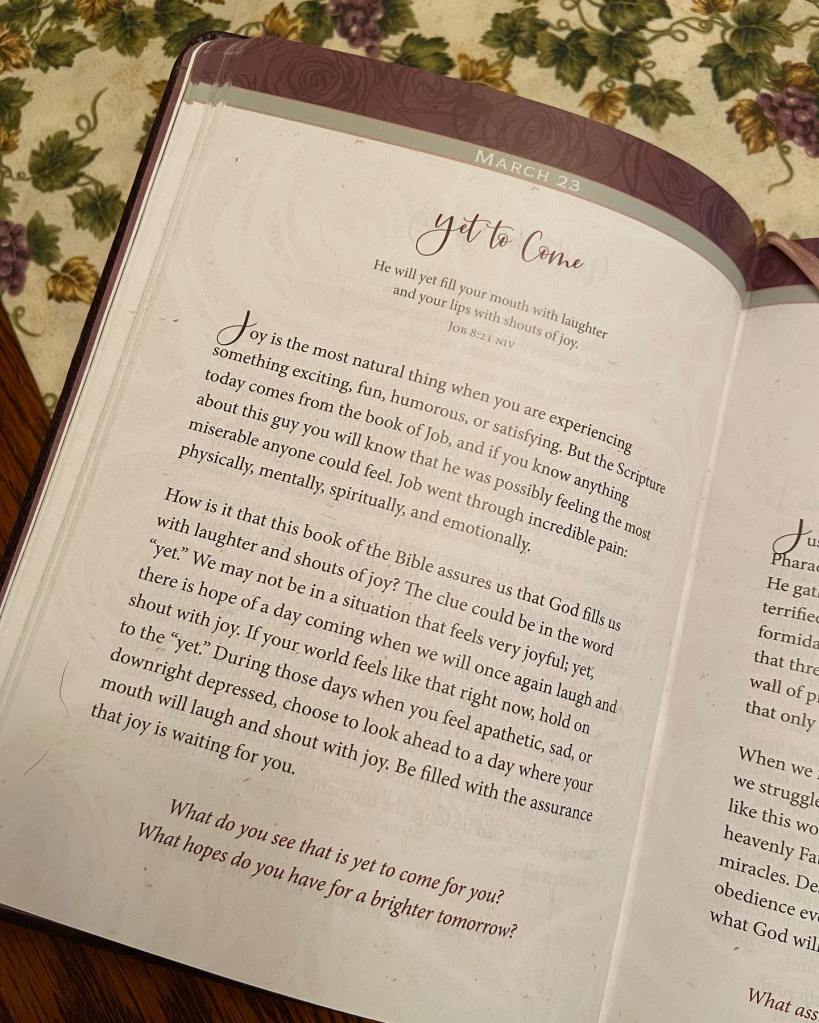 MARCH 23
yet to Come
He will yet fill your mouth with laughter
and your lips with shouts of joy.
JOB 8:21 NIV
Joy is the most natural thing when you are experiencing
something exciting, fun, humorous, or satisfying. But the Scripture
today comes from the book of Job, and if you know anything
about this guy you will know that he was possibly feeling the most
miserable anyone could feel. Job went through incredible pain:
physically, mentally, spiritually, and emotionally.
How is it that this book of the Bible assures us that God fills us
with laughter and shouts of joy? The clue could be in the word
“yet.” We may not be in a situation that feels very joyful; yet,
there is hope of a day coming when we will once again laugh and
shout with joy. If your world feels like that right now, hold on
to the “yet.” During those days when you feel apathetic, sad, or
downright depressed, choose to look ahead to a day where your
mouth will laugh and shout with joy. Be filled with the assurance
that joy is waiting for you.
What do you see that is yet to come for you?
What hopes do you have for a brighter tomorrow?
He
terrified
that
wall of
that only
When we
we
like this
heavenly
miracles.
obedience
what God will
What